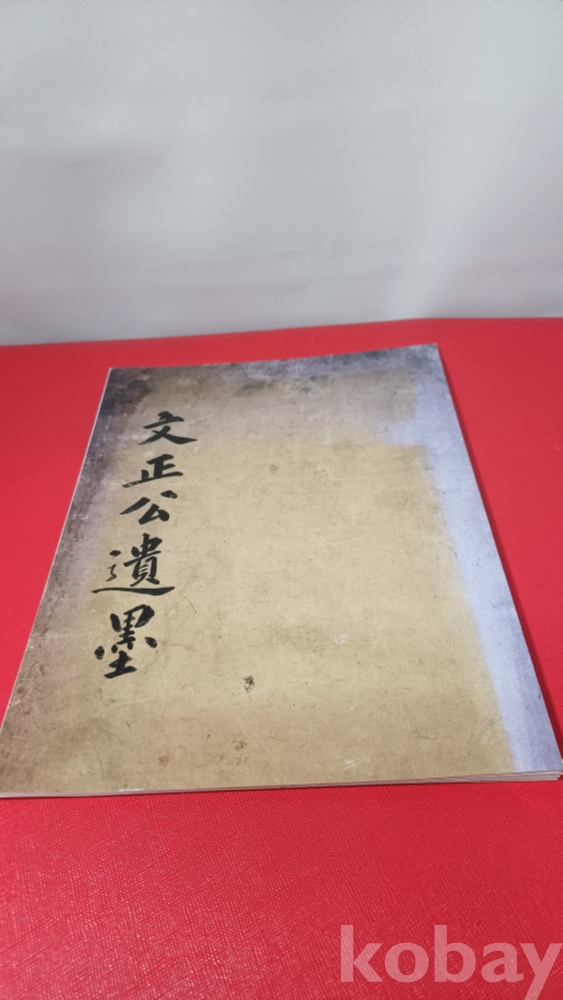 文正公遺墨
kobay